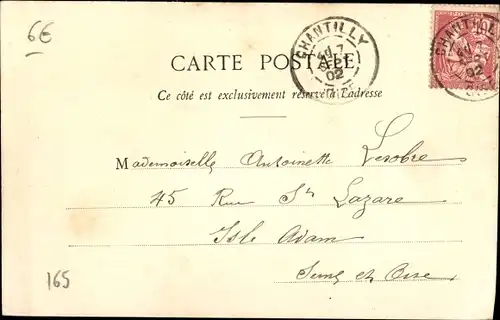 6€
CHANTILLY
7
02
OISE
CHANTILLY
02
CARTE POSTALE
Ce côté est exclusivement réservé à l'adresse
Mademoiselle Antoinette Lesobre
45 Rue St Lazare
Isle Adam
Seine et Oise
165